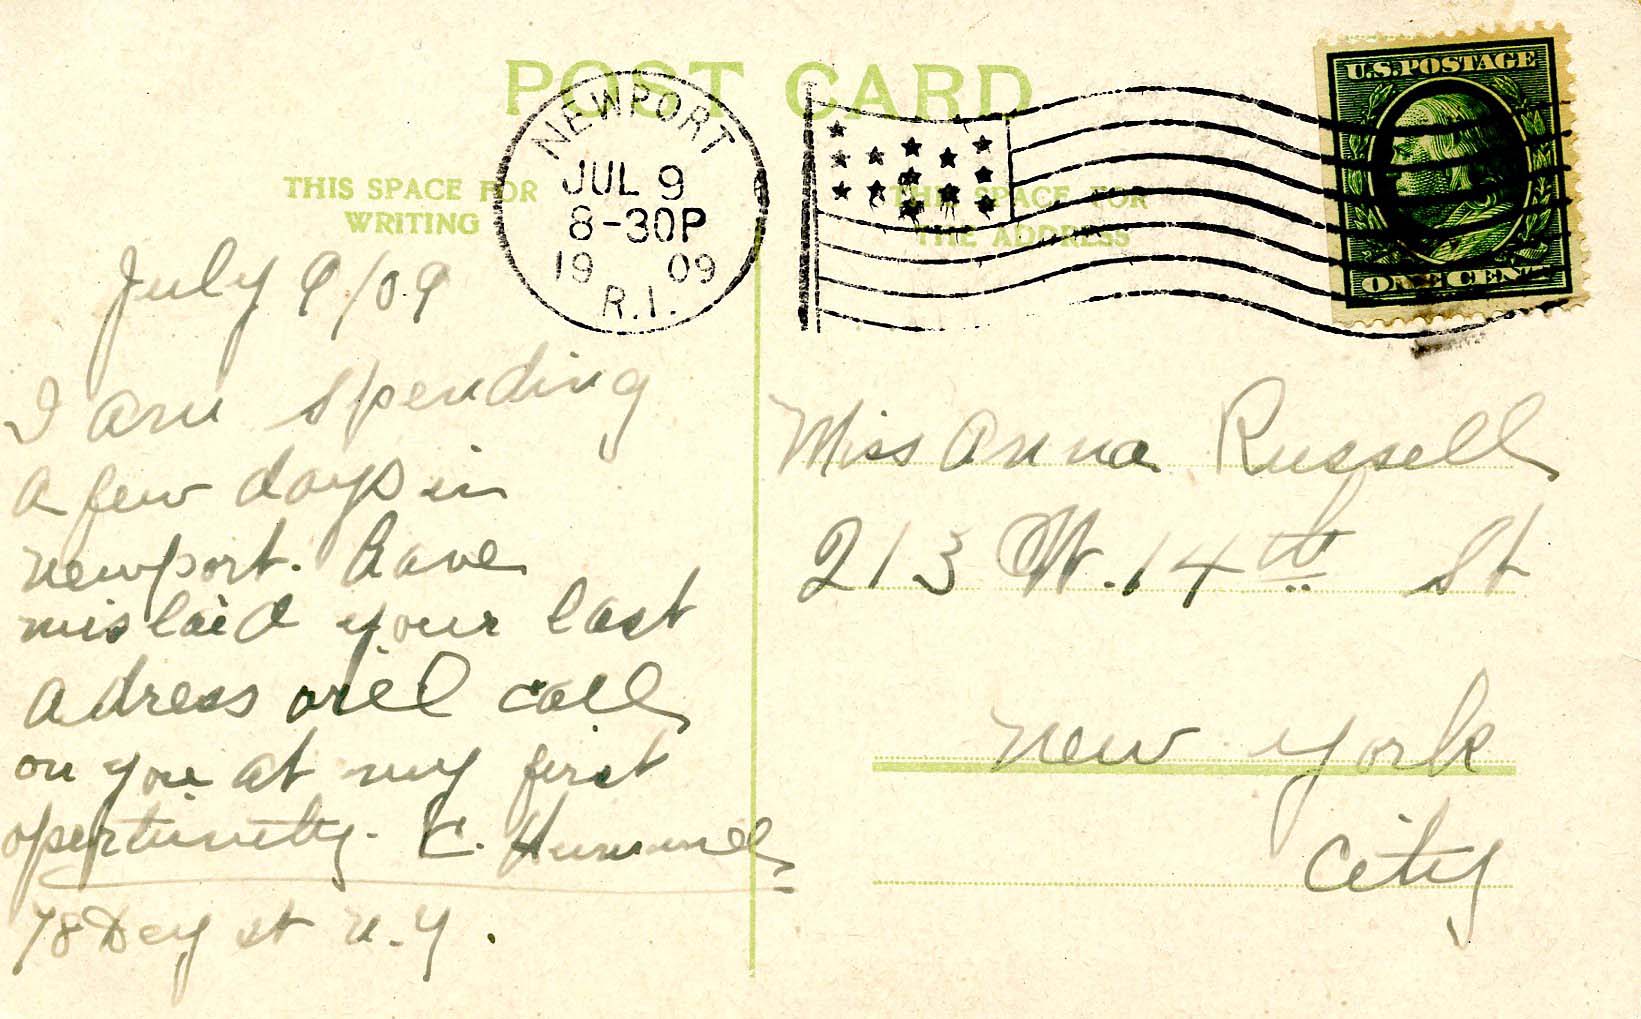 POST CARD
THIS SPACE FOR
WRITING
THIS SPACE FOR
THE ADDRESS
NEWPORT
JUL 9
8-30P
19 09
R.I.
U.S. POSTAGE
ONE CENT
July 9/09
I am spending
a few days in
Newport. Have
mislaid your last
adress will call
on you at my first
opertunity. C. Hummel
78 Dey st N.Y.
Miss Anna Russell
213 W. 14th St
New York
City